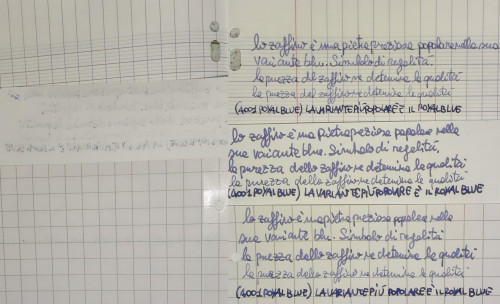 lo zaffiro è una pietra preziosa popolare nella sua
variante blu. Simbolo di regalità
la purezza del zaffiro ne determina la qualità
la purezza del zaffiro ne determina la qualità
(4001 ROYAL BLUE) LA VARIANTE PIÙ POPOLARE È IL ROYAL BLUE
lo zaffiro è una pietra preziosa popolare nella
sua variante blu. Simbolo di regalità,
la purezza dello zaffiro ne determina la qualità
la purezza dello zaffiro ne determina la qualità
(4001 ROYAL BLUE) LA VARIANTE PIÙ POPOLARE È IL ROYAL BLUE
lo zaffiro è una pietra preziosa popolare nella
sua variante blu. Simbolo di regalità
la purezza dello zaffiro ne determina la qualità
la purezza dello zaffiro ne determina la qualità
(4001 ROYAL BLUE) LA VARIANTE PIÙ POPOLARE È IL ROYAL BLUE